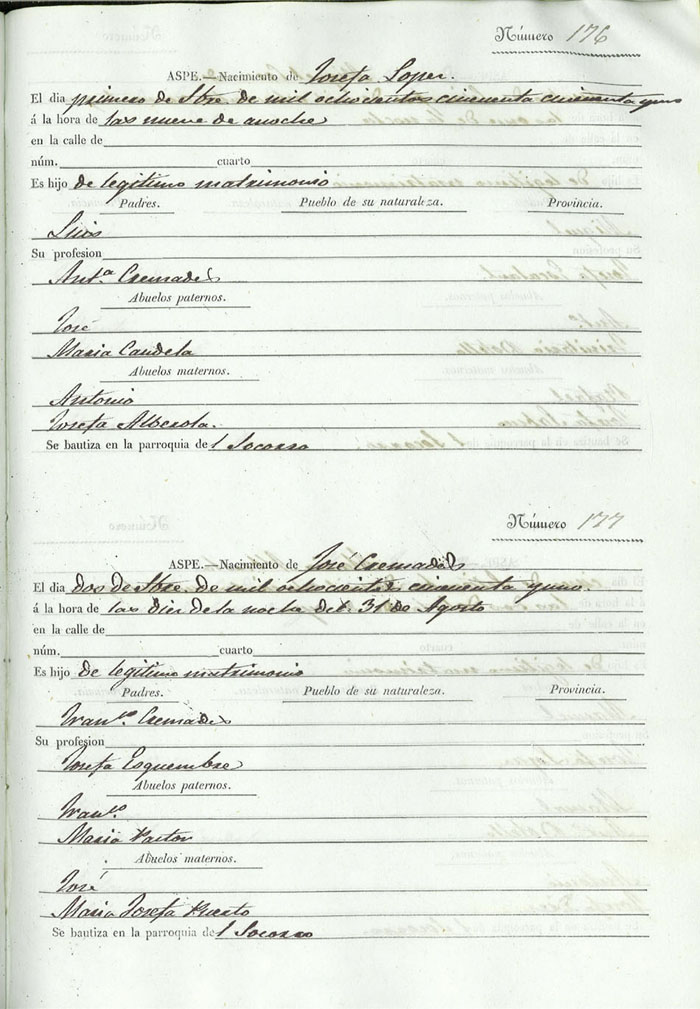 Número 176
ASPE.—Nacimiento de Josefa Loper.
El dia primero de Stre. de mil ochocientos cincuenta cincuenta y uno
á la hora de las nueve de anoche
en la calle de
núm. cuarto
Es hijo de legitimo matrimonio
Padres. Pueblo de su naturaleza. Provincia.
Luis
Su profesion
Ant.ª Cremades
Abuelos paternos.
José
Maria Candela
Abuelos maternos.
Antonio
Josefa Alberola.
Se bautiza en la parroquia del Socorro
Número 177
ASPE.—Nacimiento de José Cremades
El dia dos de Stre. de mil ochocientos cincuenta y uno.
á la hora de las dier de la noche del 31 de Agosto
en la calle de
núm. cuarto
Es hijo de legitimo matrimonio
Padres. Pueblo de su naturaleza. Provincia.
Fran.co Cremades
Su profesion
Josefa Esquembre
Abuelos paternos.
Fran.co
Maria Pastor
Abuelos maternos.
José
Maria Josefa Puerto
Se bautiza en la parroquia del Socorro